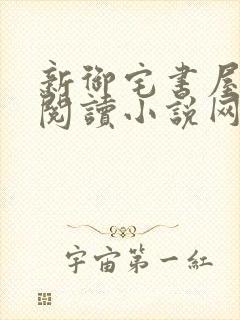 新御宅书屋
閱讀小說网
宇宙第一紅